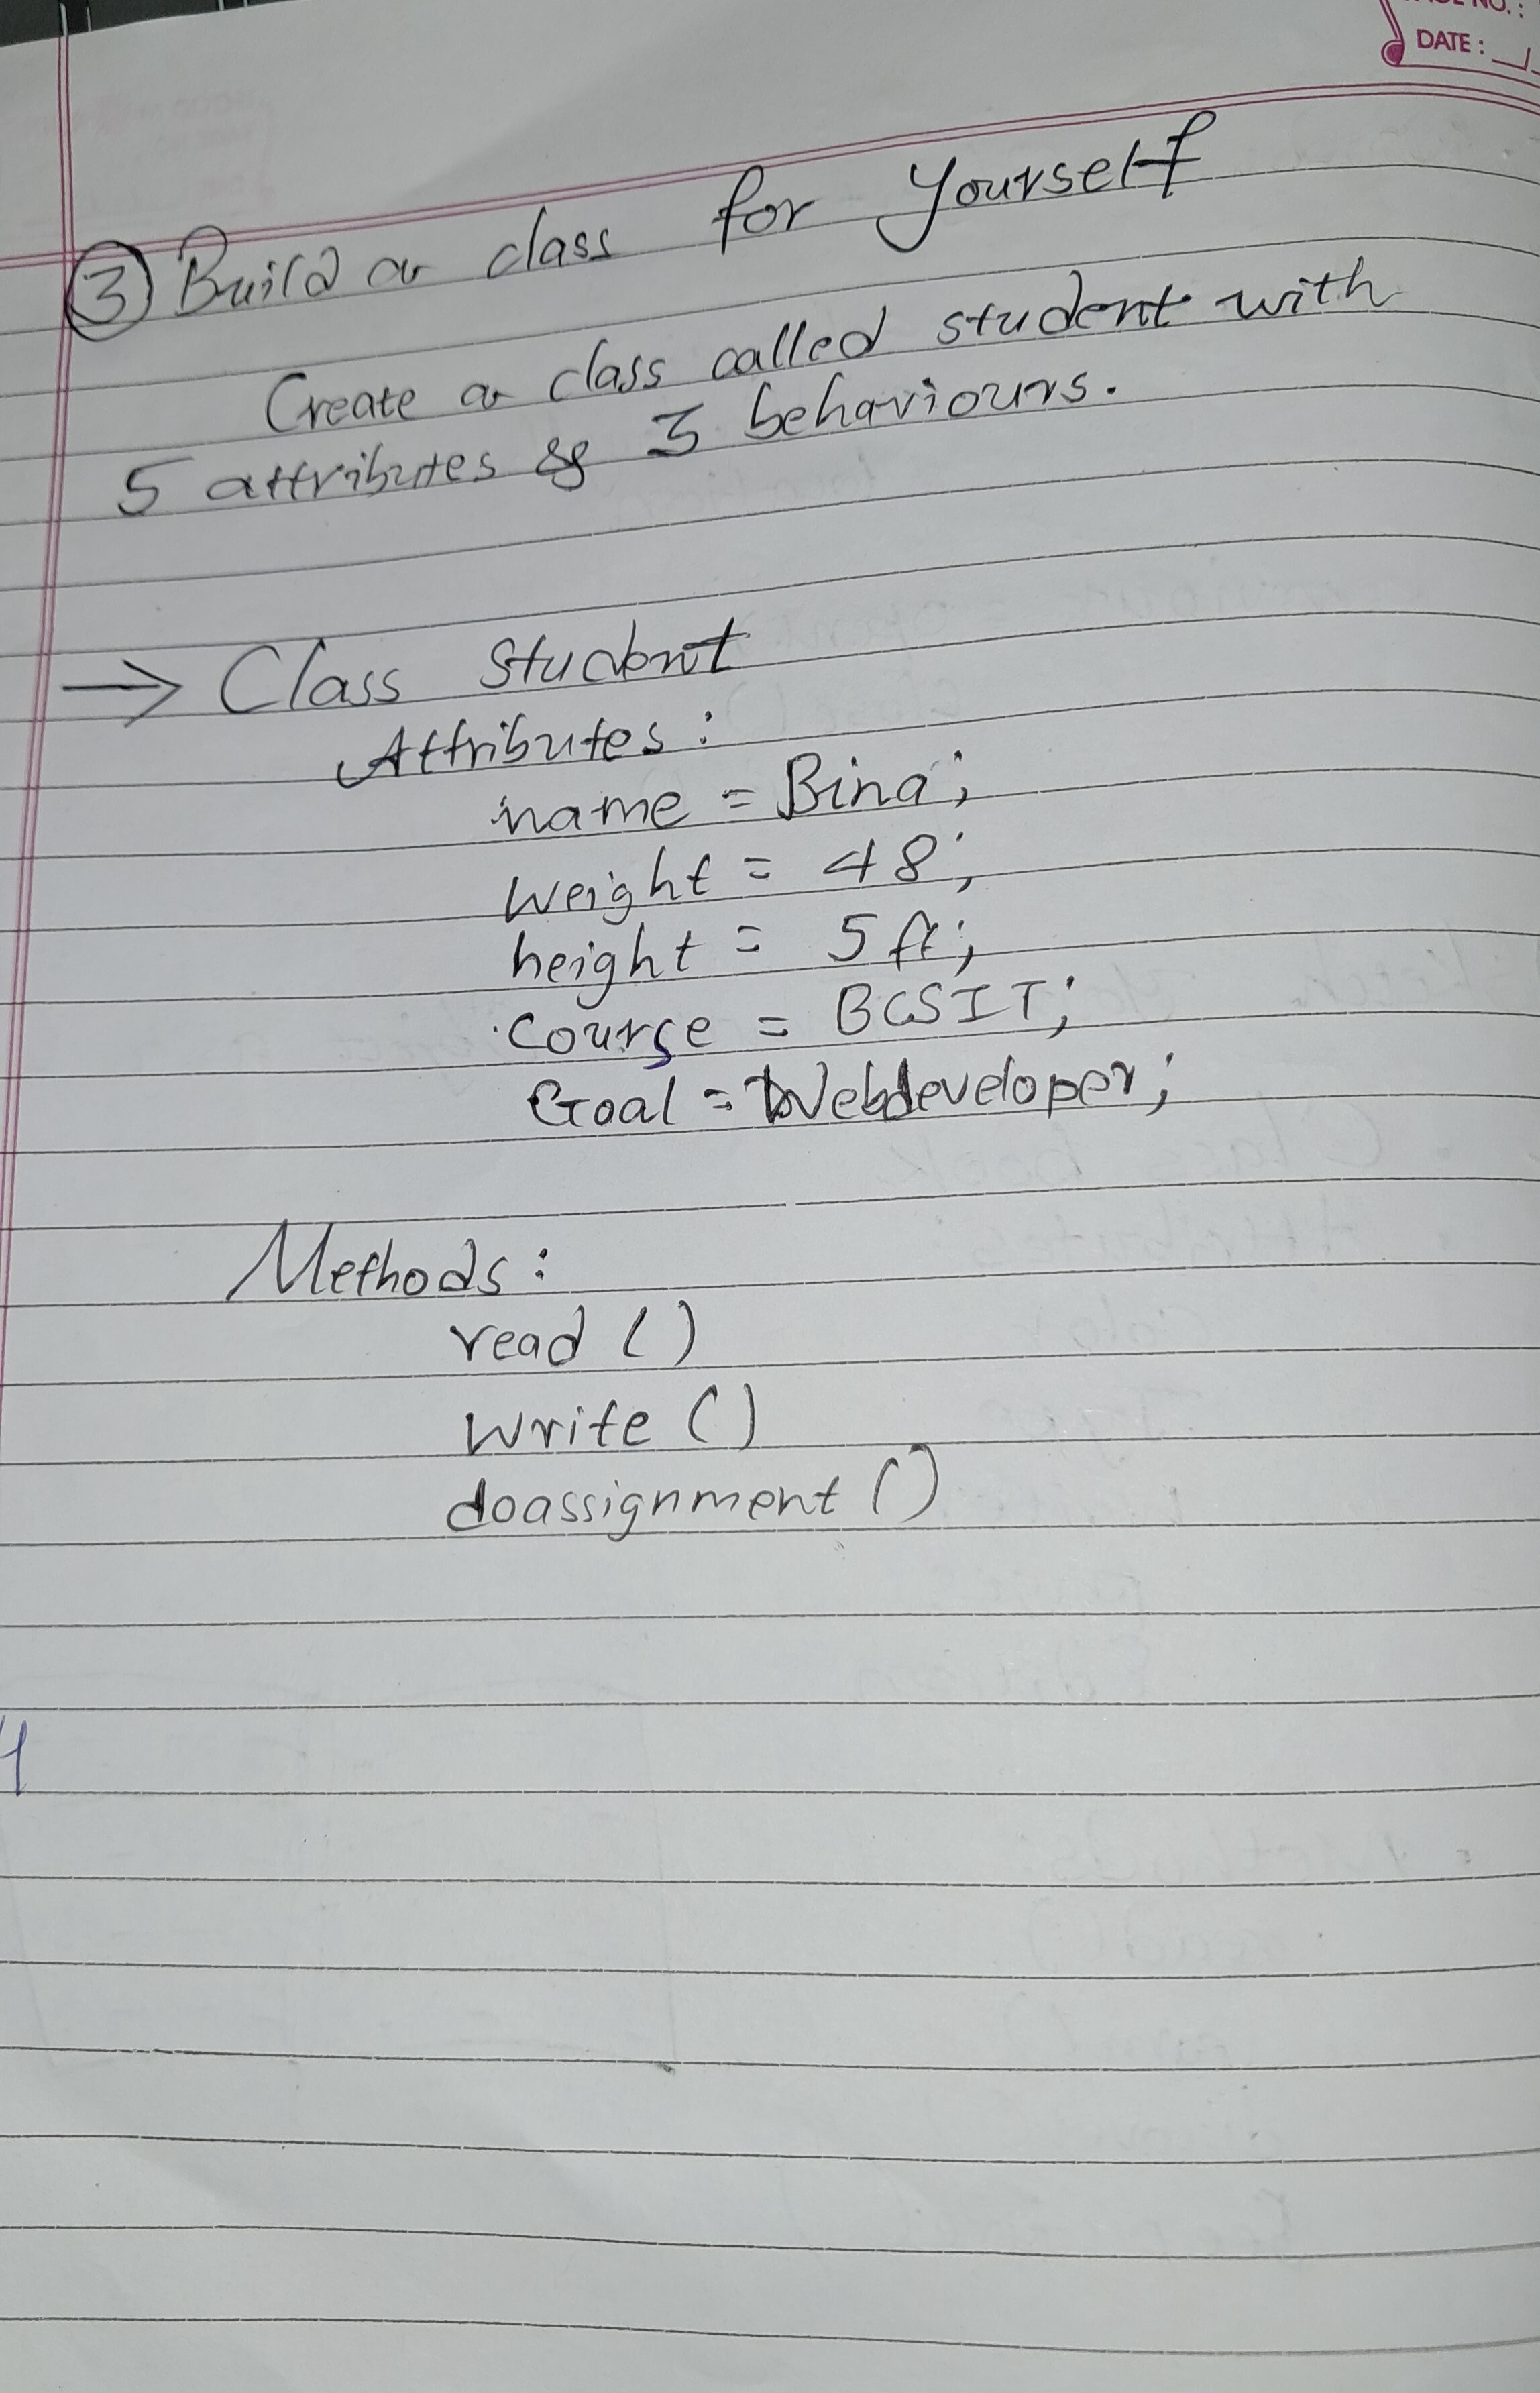 NO. :
DATE :
③ Build a class for Yourself
Create a class called student with
5 attributes & 3 behaviours.
→ Class Student
Attributes :
name = Bina ;
weight = 48 ;
height = 5 ft ;
course = BCSIT ;
Goal = Webdeveloper ;
Methods :
read ()
write ()
doassignment ()